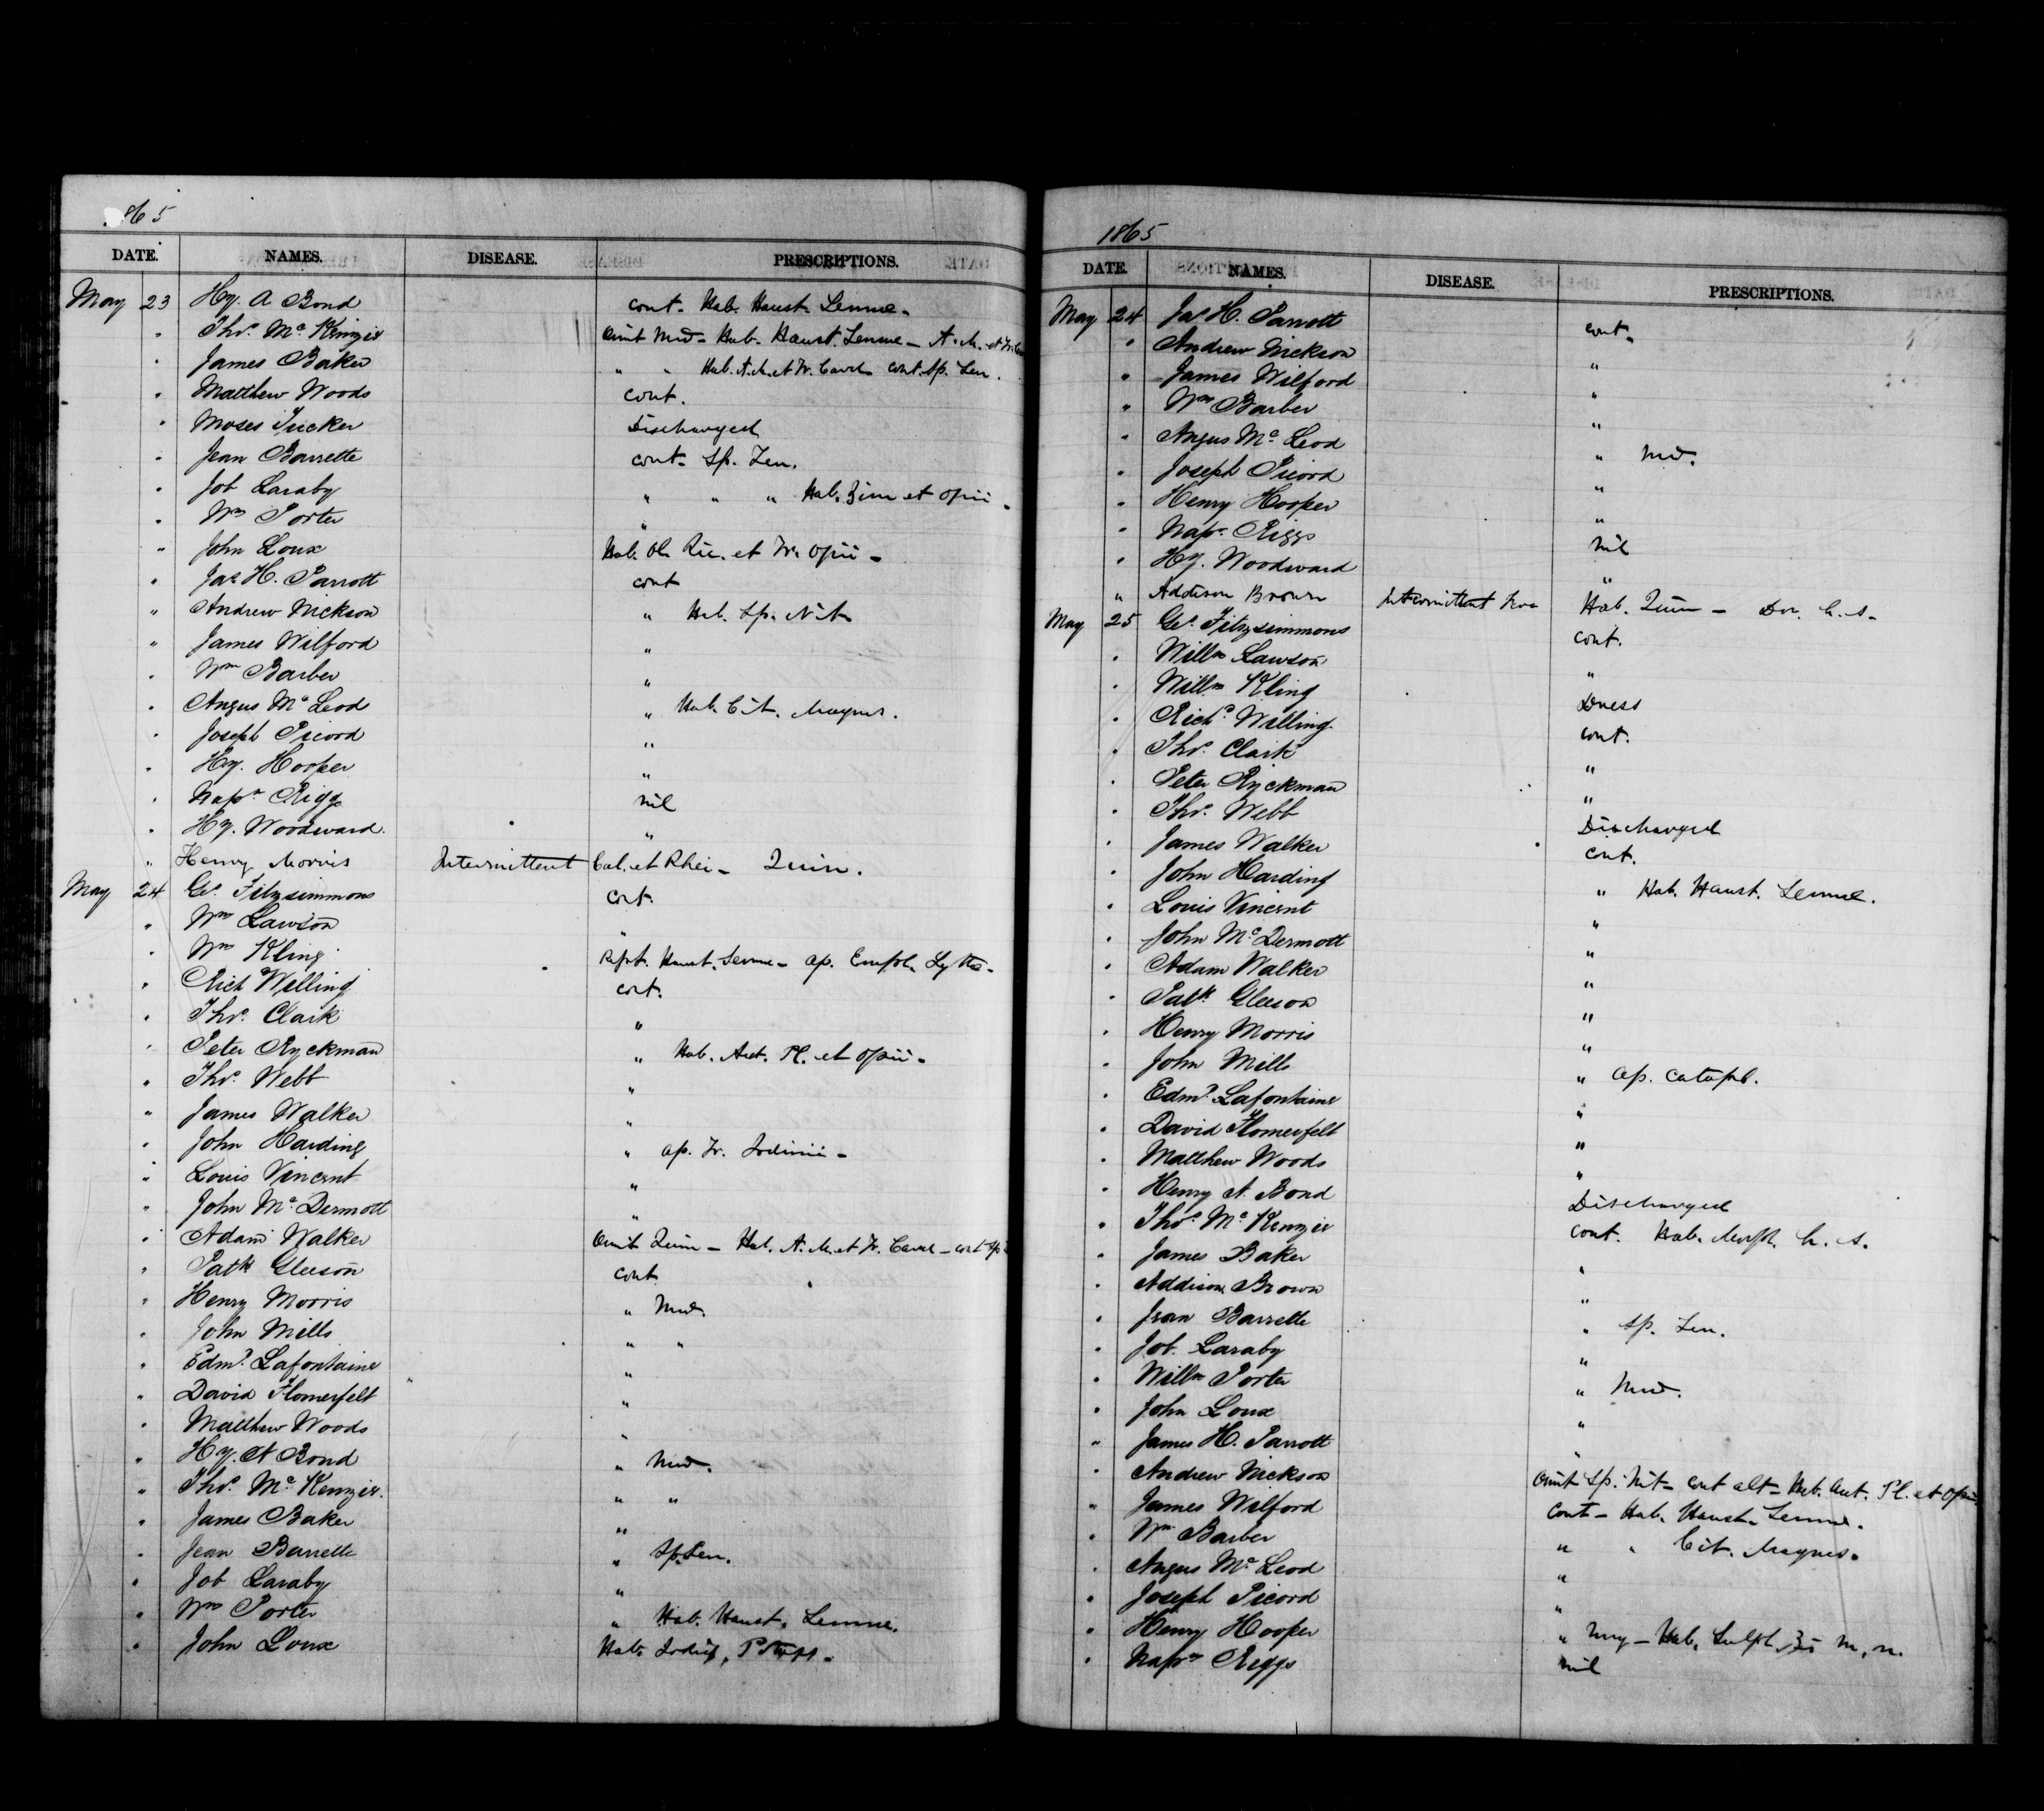 1865
DATE. NAMES. DISEASE. PRESCRIPTIONS.
May 23 Hy. A Bond cont. Hab. Haust. Sennae.
" Thos. McKenzie Omit Med. Hab. Haust. Sennae - A. M. et Tr.
" James Baker " " Hab. A. M. et Tr. Card cont. Sp. Fen.
" Matthew Woods cont.
" Moses Tucker Discharged
" Jean Barrette cont. Sp. Fen.
" Job Laraby " " " Hab. et Opii.
" Wm Porter "
" John Loux Hab. Ol. Ric. et Tr. Opii -
" Jas H. Parrott cont
" Andrew Nickson " Hab. Sp. Nit
" James Wilford "
" Wm Barber "
" Angus McLeod " Hab. Cit. Magnes.
" Joseph Picord "
" Hy. Hooper "
" Napn Riggs nil
" Hy. Woodward. "
" Henry Morris Intermittent Cal. et Rhei - Quin.
May 24 Geo. Fitzsimmons cont.
" Wm Lawson "
" Wm Kling Rept. Haust. Sennae - Ap. Empl. Lyttae.
" Rich Willing cont.
" Thos. Clark "
" Peter Ryckman " Hab. Acet. Pl. et Opii.
" Thos. Webb "
" James Walker "
" John Harding " Ap. Tr. Iodinii -
" Louis Vincent "
" John McDermott "
" Adam Walker Omit Quin - Hab. A. M. et Tr. Card - cont Sp
" Patk Gleeson cont
" Henry Morris " Med.
" John Mills " "
" Edmd. Lafontaine "
" David Homerfelt "
" Matthew Woods "
" Hy. A Bond " Med.
" Thos. McKenzie. " "
" James Baker "
" Jean Barrette " Sp. Fen.
" Job Laraby "
" Wm Porter " Hab. Haust. Sennae.
" John Loux Hab. Potass.
1865
DATE. NAMES. DISEASE. PRESCRIPTIONS.
May 24 Jas H. Parrott cont.
" Andrew Nickson "
" James Wilford "
" Wm Barber "
" Angus McLeod " Med.
" Joseph Picord "
" Henry Hooper "
" Napn Riggs nil
" Hy. Woodward "
" Addison Brown Intermittent Fever Hab. Quin - Dov. h. s.
May 25 Geo. Fitzsimmons cont.
" Willm Lawson "
" Willm Kling Dress
" Richd. Willing cont.
" Thos. Clark "
" Peter Ryckman "
" Thos. Webb Discharged
" James Walker cont.
" John Harding " Hab. Haust. Sennae.
" Louis Vincent "
" John McDermott "
" Adam Walker "
" Patk Gleeson "
" Henry Morris "
" John Mills " Ap. Catapl.
" Edmd. Lafontaine "
" David Homerfelt "
" Matthew Woods "
" Henry A. Bond Discharged
" Thos. McKenzie cont. Hab. Morph. h. s.
" James Baker "
" Addison Brown "
" Jean Barrette " Sp. Fen.
" Job. Laraby "
" Willm Porter " Med.
" John Loux "
" James H. Parrott "
" Andrew Nickson Omit Sp. Nit - cont alt - Hab. Acet. Pl. et Opii
" James Wilford Cont - Hab. Haust. Sennae.
" Wm Barber " " Cit. Magnes.
" Angus McLeod "
" Joseph Picord "
" Henry Hooper " Ung - Hab. Sulph. m. n.
" Napn Riggs nil